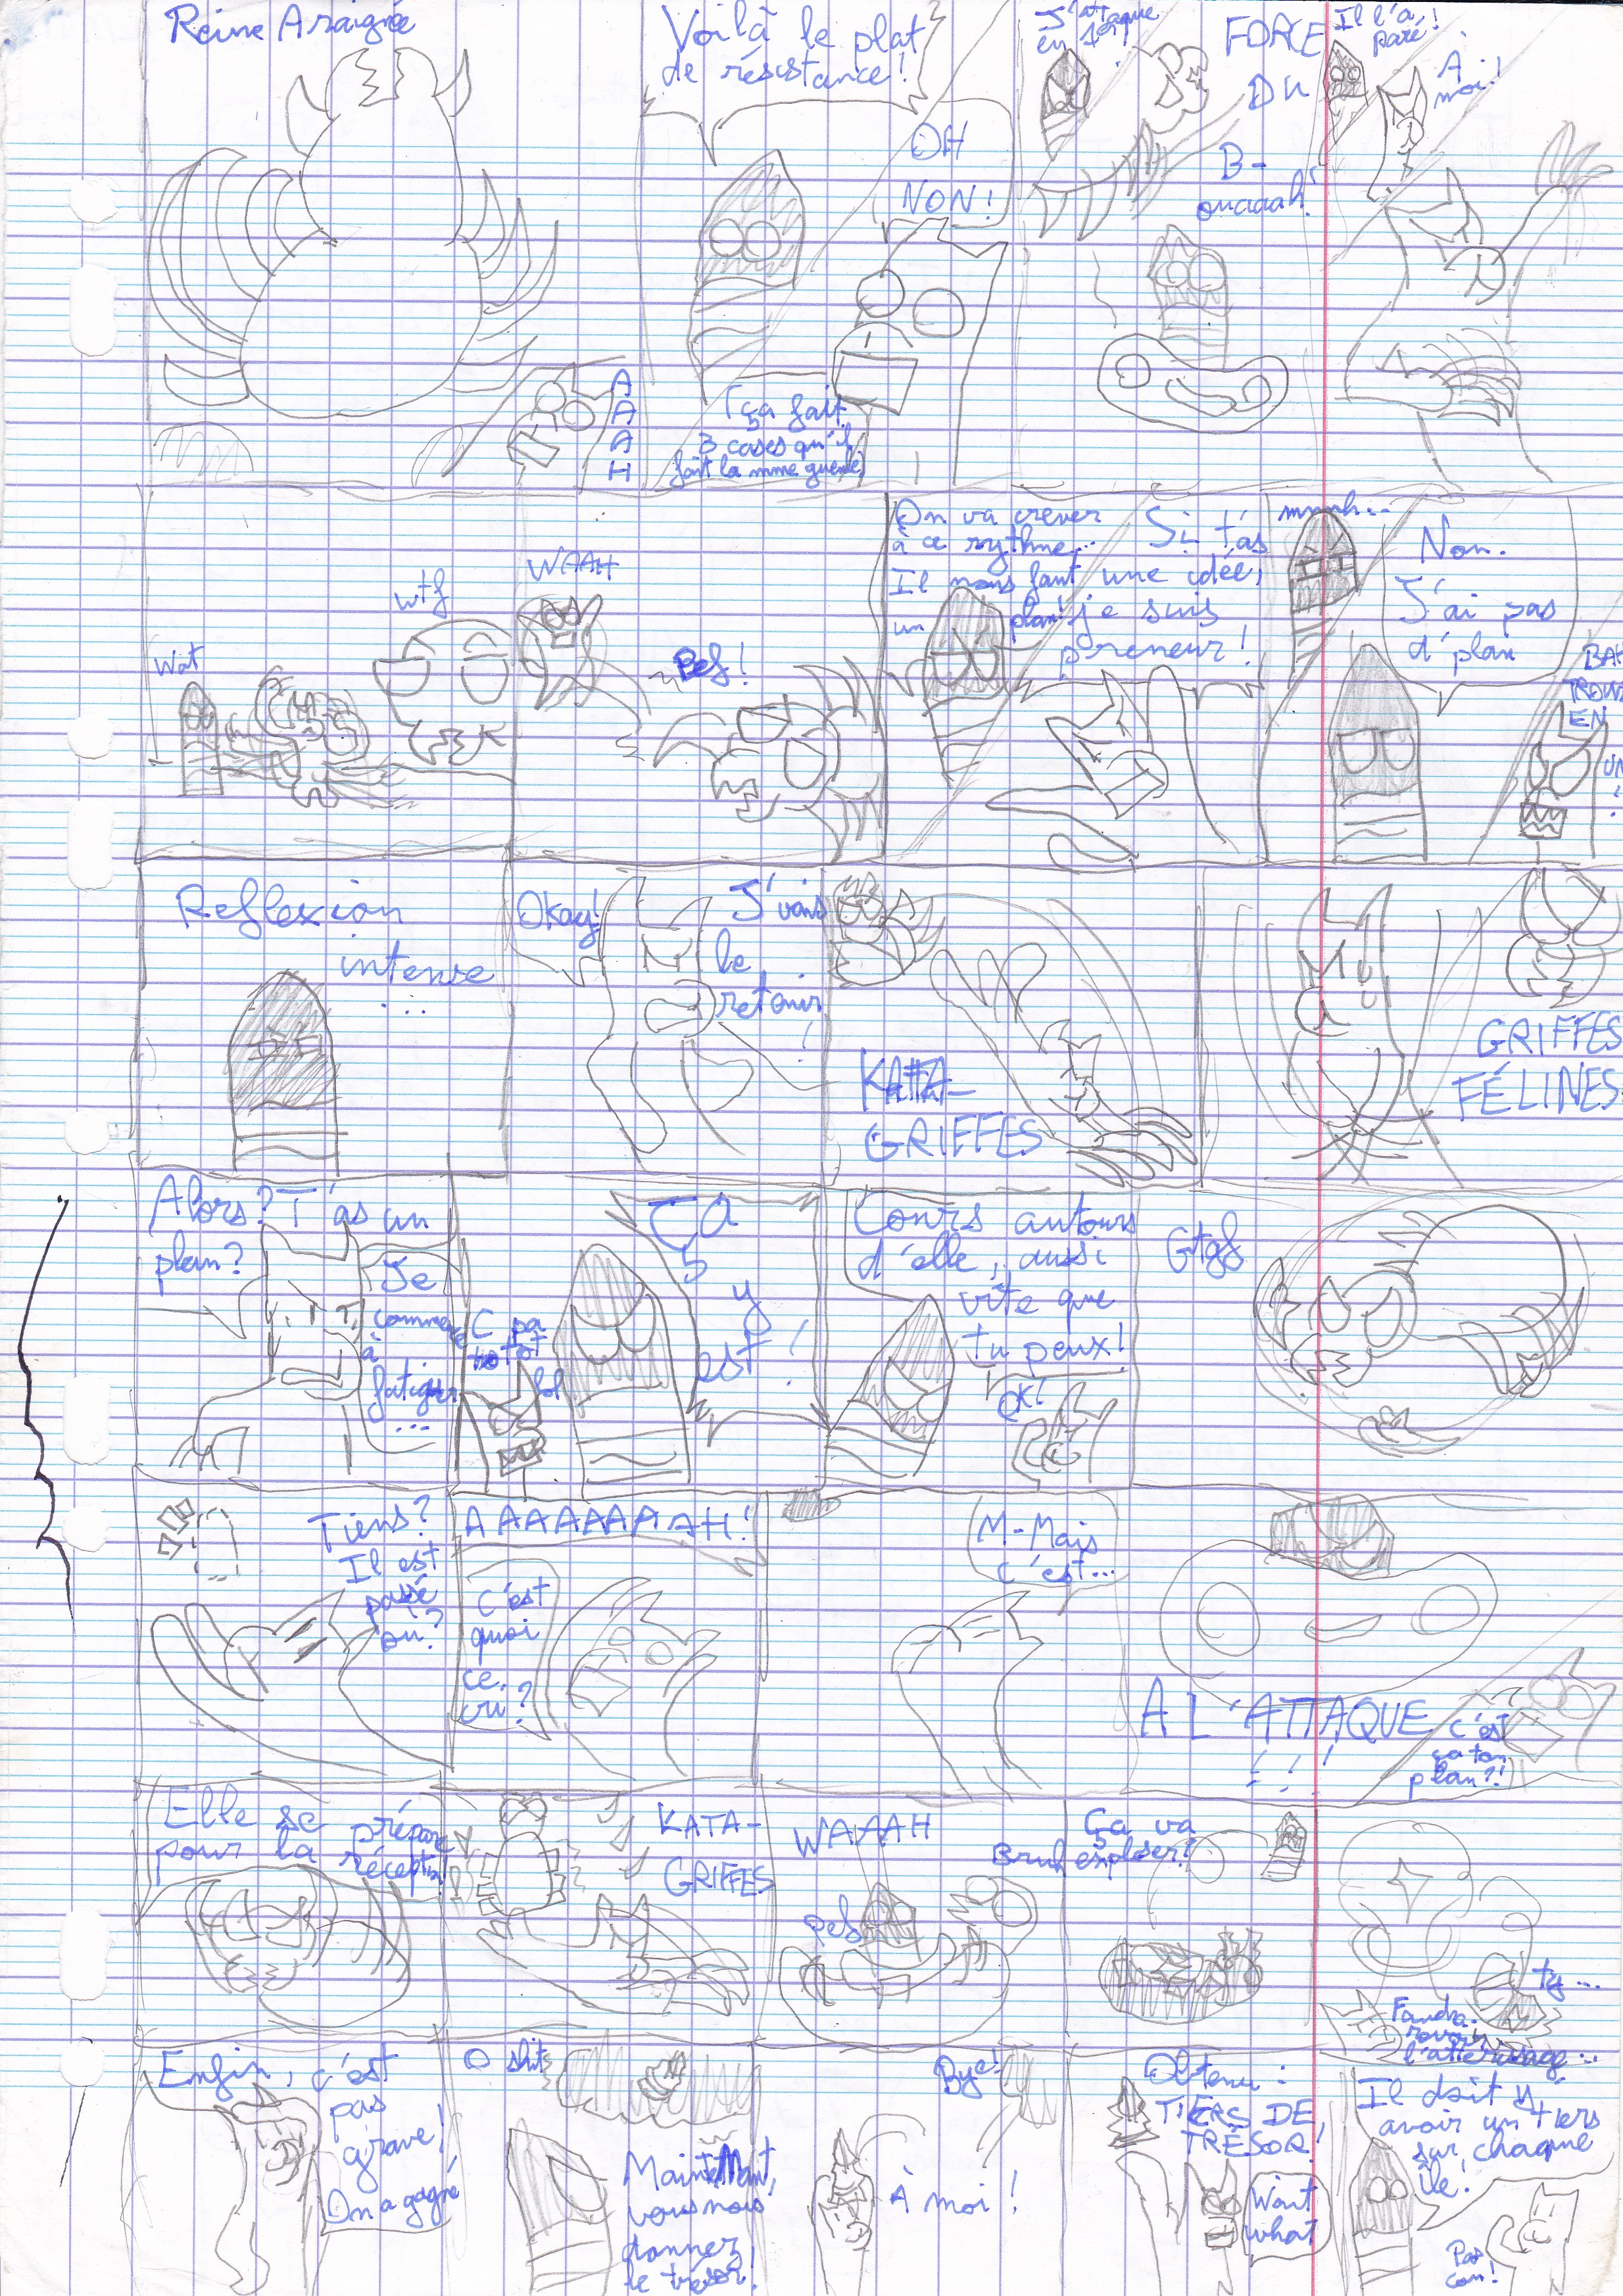 Reine Araignée
A
A
A
H
Voilà le plat
de résistance!
OH
NON!
(ça fait
3 cases qu'il
fait la mme gueule)
J'attaque
en 1er!
FORCE
DU
B-
ouaaah!
Il l'a
paré!
A
moi!
Wat
wtf
WAAH
Pef!
On va crever
à ce rythme...
Il nous faut
un plan!
Si t'as
une idée,
je suis
preneur!
mmmh...
Non.
J'ai pas
d'plan
BAH
TROUVE
EN
UN
!
Reflexion
intense
...
Okay!
J'vais
le
retenir
!
KATA-
GRIFFES
GRIFFES
FÉLINES
Alors? T'as un
plan?
Je
commence
à
fatiguer
...
C pa
tro tôt
lol
ÇA
y
est!
Cours autours
d'elle, aussi
vite que
tu peux!
OK!
Gtgf
Tiens?
Il est
passé
où?
AAAAAAAAH!
C'est
quoi
ce
cri?
M-Mais
c'est...
A L'ATTAQUE
!!!
c'est
ça ton
plan?!
Elle se prépare
pour la réception!
KATA-
GRIFFES
WAAAH
pef
Bruh
Ça va
exploser!
ty...
Faudra
revoir
l'atterissage...
Enfin, c'est
pas
grave!
On a gagné
O shit
Maintenant,
vous nous
donner
le trésor!
Bye!
À moi!
Obtenu:
TIERS DE
TRÉSOR!
Wait
what
Il doit y
avoir un tiers
sur chaque
île!
Pas
con!